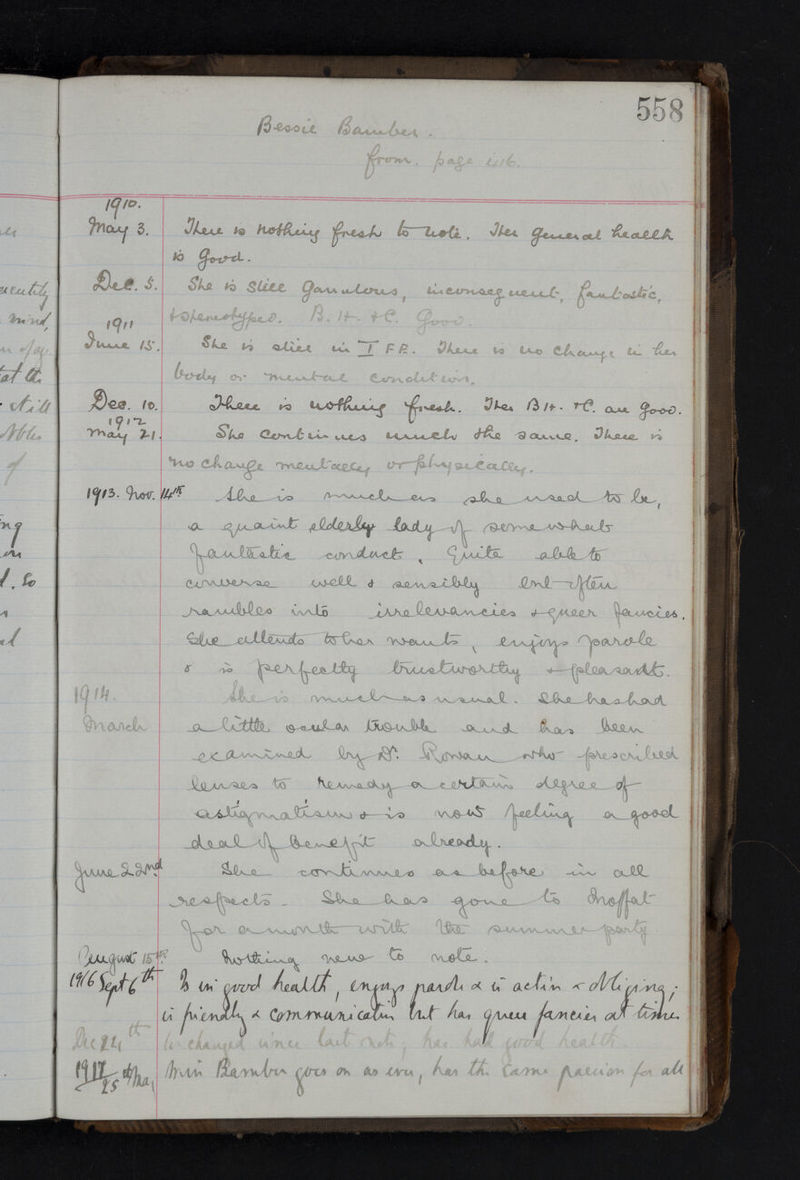 558
Bessie Bamber.
from. page
1910.
May 3. There is nothing fresh to note. Her general health
is good.
Dec. 5. She is still garrulous, inconsequent, fantastic,
& stereotyped. B.H. & C. Good.
1911
June 15. She is still in I F.P. There is no change in her
body or mental condition.
Dec. 10. There is nothing fresh. Her B.H. & C. are good.
1912
May 21. She continues much the same. There is
no change mentally or physically.
1913. Nov. 14th She is much as she used to be,
a quaint elderly lady of somewhat
fantastic conduct. Quite able to
converse well & sensibly but often
rambles into irrelevancies & queer fancies.
She attends to her wants, enjoys parole
& is perfectly trustworthy & pleasant.
1914. She is much as usual. She has had
March a little ocular trouble and has been
examined by Dr. Rowan who prescribed
lenses to remedy a certain degree of
astigmatism & is now feeling a good
deal of benefit already.
June 22nd She continues as before in all
respects. She has gone to Moffat
for a month with the summer party
August 15th. Nothing new to note.
1916 Sept 6th Is in good health, enjoys parole & is active & obliging;
is friendly & communicative but has queer fancies at times
Dec 24th Unchanged since last note, has had good health.
1917 25th May Miss Bamber goes on as ever, has the same passion for all
ng
d. So
of
mind,
at the
still